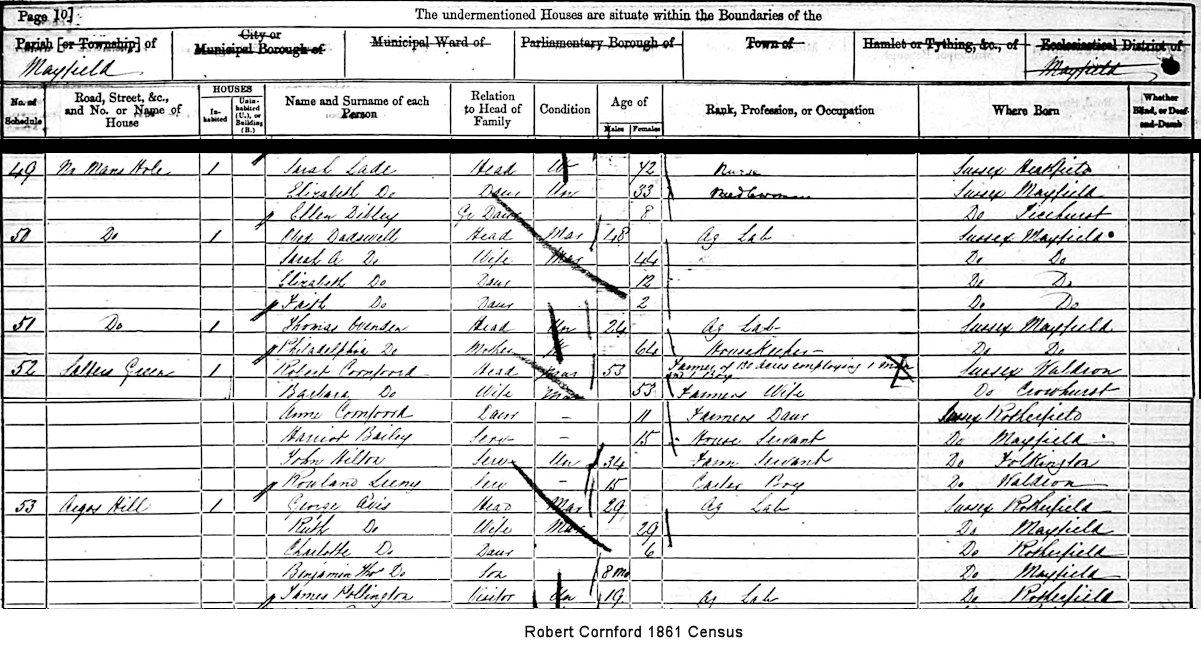 Page 10]
The undermentioned Houses are situate within the Boundaries of the
Parish [or Township] of City or Municipal Borough of Municipal Ward of Parliamentary Borough of Town of Hamlet or Tything, &c., of Ecclesiastical District of
Mayfield Mayfield
No. of Schedule Road, Street, &c., and No. or Name of House HOUSES Inhabited Uninhabited (U.), or Building (B.) Name and Surname of each Person Relation to Head of Family Condition Age of Males Females Rank, Profession, or Occupation Where Born Whether Blind, or Deaf-and-Dumb
49 No Mans Hole 1 Sarah Lade Head Un 72 Nurse Sussex Heathfield
Elizabeth Do Daur Un 33 Sussex Mayfield
Ellen Dibley Gr Daur 8 Do Ticehurst
50 Do 1 Dadswell Head Mar 48 Ag Lab Sussex Mayfield
Sarah A Do Wife Mar 44 Do Do
Elizabeth Do Daur 12 Do Do
Faith Do Daur 2 Do Do
51 Do 1 Thomas Ovenden Head Un 24 Ag Lab Sussex Mayfield
Philadelphia Do Mother 64 HouseKeeper Do Do
52 Salters Green 1 Robert Cornford Head Mar 53 Farmer of 130 acres employing 1 man and 1 Boy Sussex Waldron
Barbara Do Wife Mar 53 Farmers Wife Do Crowhurst
Anne Cornford Daur - 11 Farmers Daur Sussex Rotherfield
Harriot Bailey Serv - 15 House Servant Do Mayfield
John Hilton Serv Un 34 Farm Servant Do Folkington
Rowland Serv - 15 Carter Boy Do Waldron
53 Argos Hill 1 George Avis Head Mar 29 Ag Lab Sussex Rotherfield
Ruth Do Wife Mar 29 Do Mayfield
Charlotte Do Daur 6 Do Rotherfield
Benjamin Thos Do Son 8 Mo Do Mayfield
James Pollington Visitor Un 19 Ag Lab Do Rotherfield
Robert Cornford 1861 Census